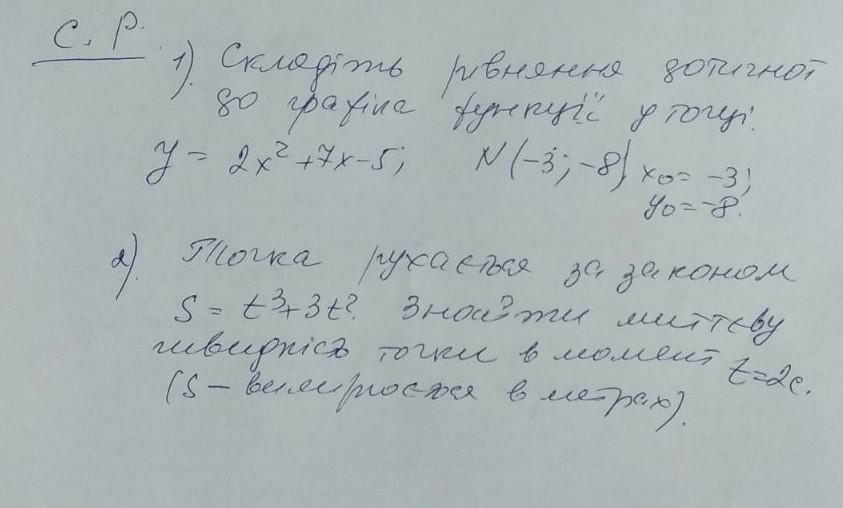 С. Р.
1) Складіть рівняння дотичної
до графіка функції у точці.
y = 2x² + 7x - 5; N (-3; -8) x₀ = -3;
y₀ = -8.
2) Точка рухається за законом
S = t³ + 3t². Знайти миттєву
швидкість точки в момент t = 2c.
(S – вимірюється в метрах).